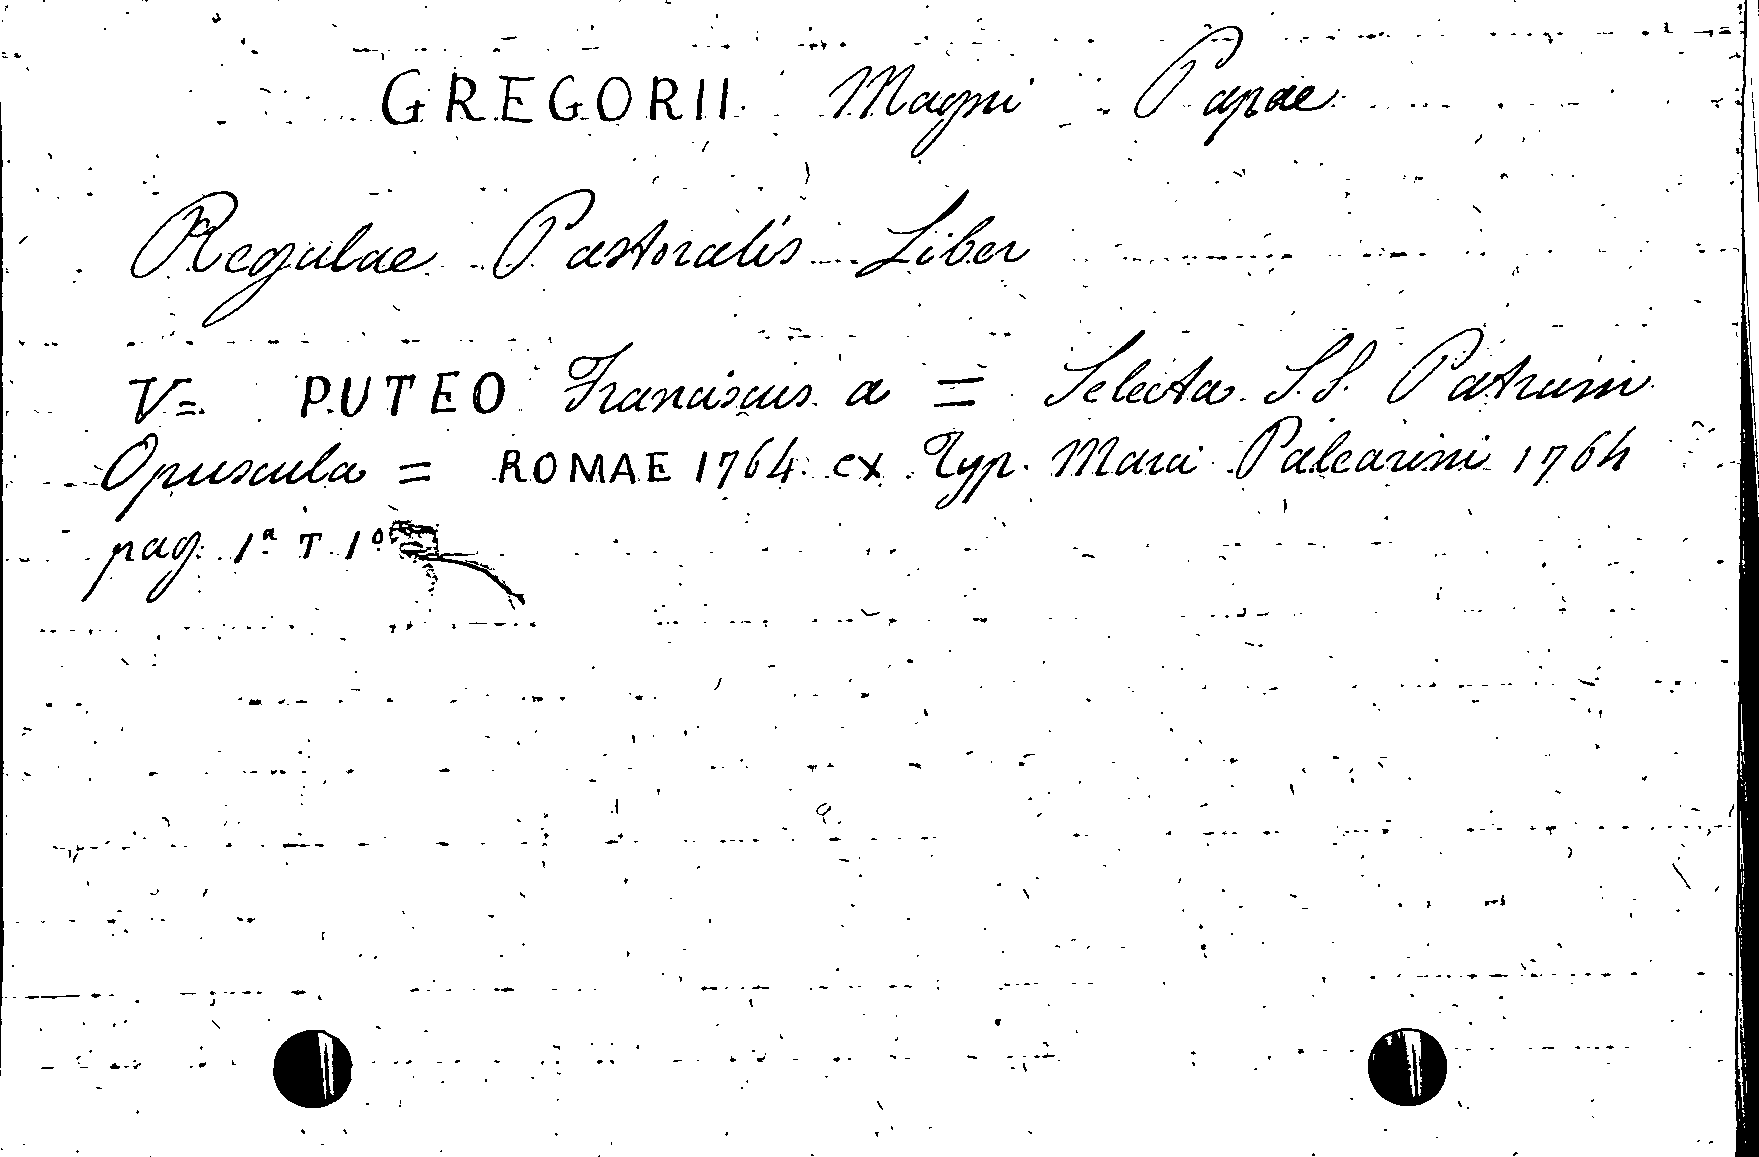 GREGORII Magni Papae
Regulae Pastoralis Liber
V= PUTEO Franciscus a = Selecta S.S. Patrum
Opuscula = ROMAE 1764 ex Typ. Marci Palearini 1764
pag. 1ª T 1º